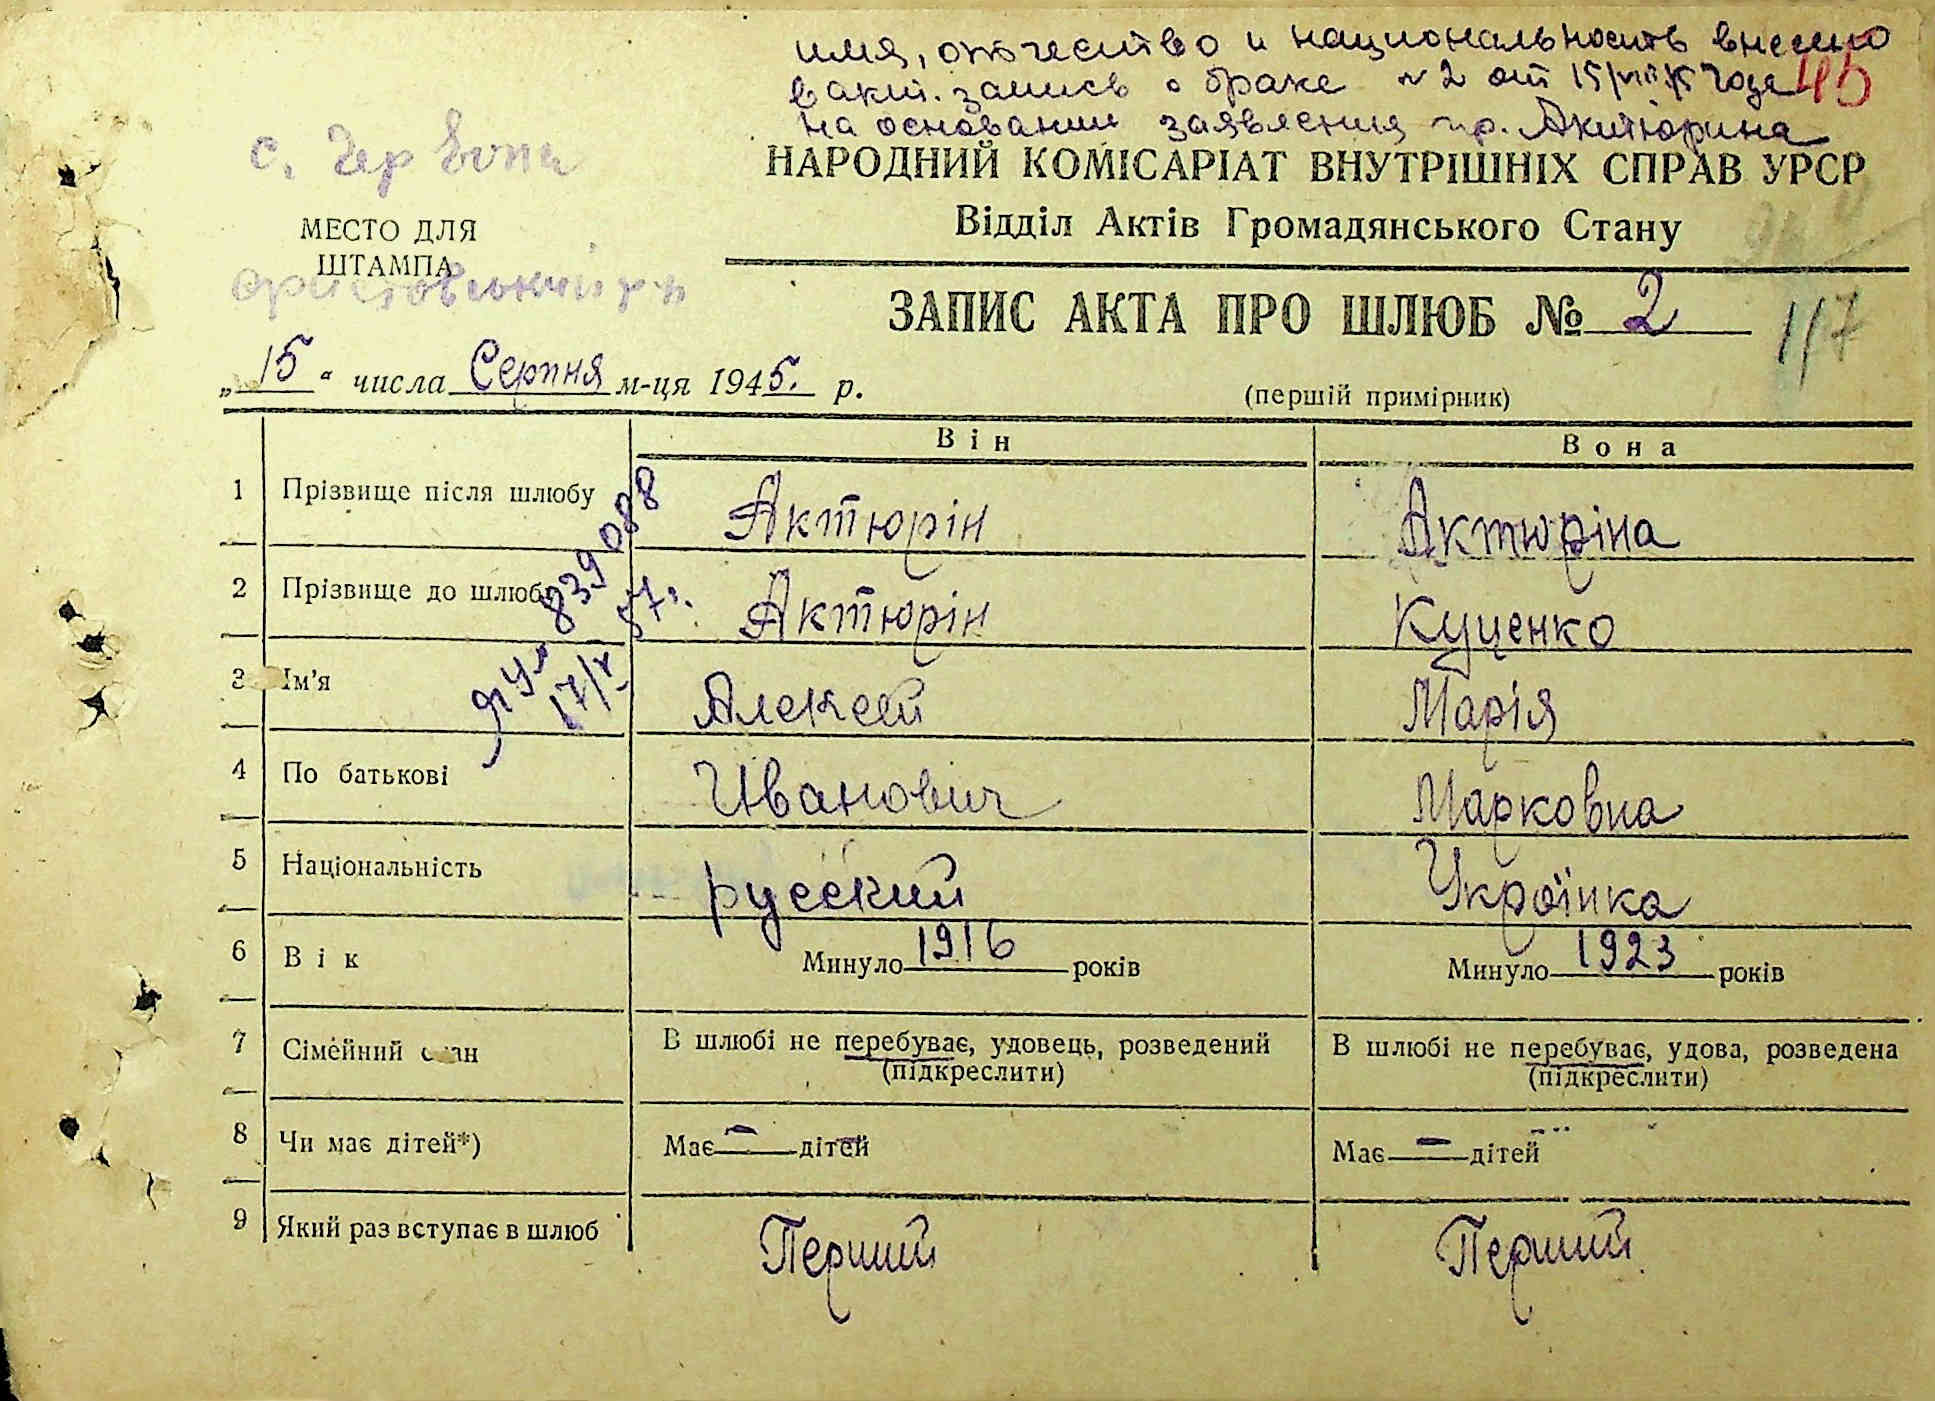 имя, отчество и национальность внесено
в акт. запись о браке № 2 от 15/VIII 45 года
на основании заявления гр. Актюрина
45
с. Червона
НАРОДНИЙ КОМІСАРІАТ ВНУТРІШНІХ СПРАВ УРСР
Відділ Актів Громадянського Стану
МЕСТО ДЛЯ
ШТАМПА
ЗАПИС АКТА ПРО ШЛЮБ № 2
117
„15“ числа Серпня м-ця 1945. р.
(перший примірник)
Він Вона
1 Прізвище після шлюбу Актюрін Актюріна
2 Прізвище до шлюбу Актюрін Куценко
839088
17/V 57г.
3 Ім’я Алексей Марія
4 По батькові Иванович Марковна
5 Національність русский Українка
6 Вік Минуло 1916 років Минуло 1923 років
7 Сімейний стан В шлюбі не перебуває, удовець, розведений В шлюбі не перебуває, удова, розведена
(підкреслити) (підкреслити)
8 Чи має дітей*) Має — дітей Має — дітей
9 Який раз вступає в шлюб Перший Перший